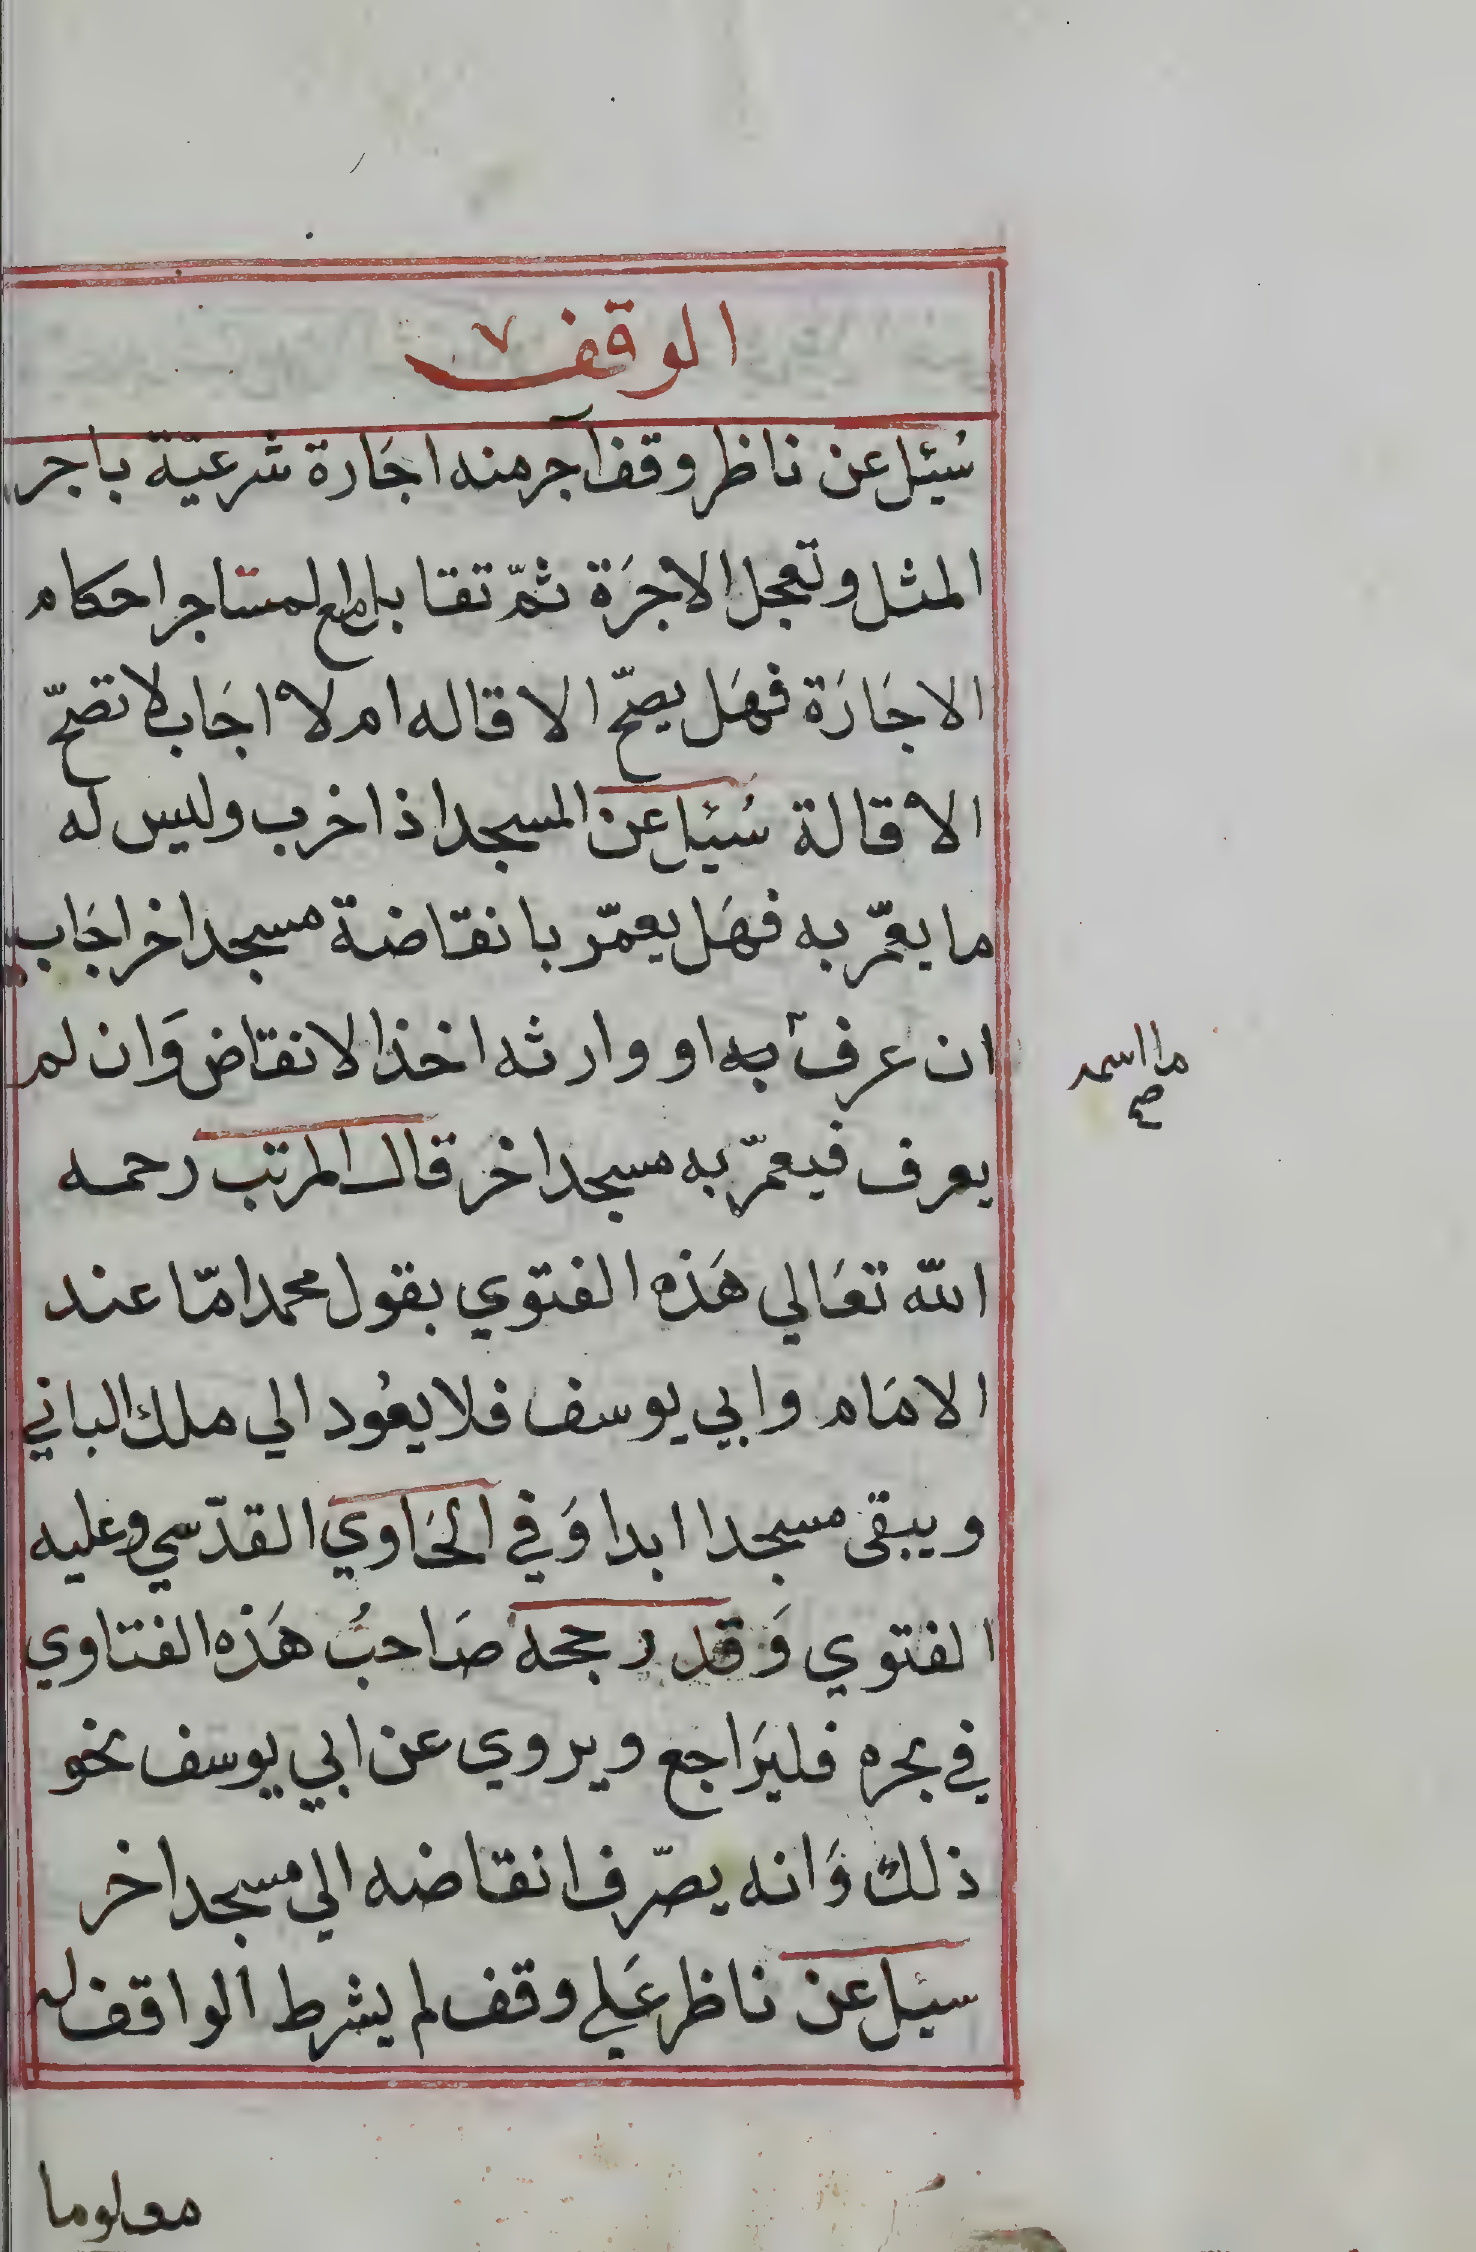 الوقف
سُئل عن ناظر وقف آجر منه اجَارة شرعيّة باجر
المثل وتعجل الاجرَة ثمّ تقايل مع المستاجر احكام
الاجَارَة فهَل يصحّ الاقاله ام لا اجَاب لا تصحّ
الاقالة سُئل عن المسجد اذا خرب وليس له
ما يعمّر به فهَل يعمّر بانقاضة مسجد اخر اجَاب
ان عرف به او وارثه اخذ الانقاض وَان لم
ما اسمه
صح
يعرف فيعمّر به مسجد اخر قال المرتب رحمه
اللّه تعَالي هَذه الفتوي بقول محمد امّا عند
الامَام وابي يوسف فلا يعُود الي ملك الباني
ويبقى مسجدا ابدا وَفي الحَاوي القدّسي وعليه
الفتوي وَقد رجحه صَاحبُ هَذه الفتاوي
في بحره فليرَاجع ويروي عن ابي يوسف نحو
ذلك وَانه يصّرف انقاضه الي مسجد اخر
سيل عن ناظر عَلي وقف لم يشرط الواقف له
معلوما